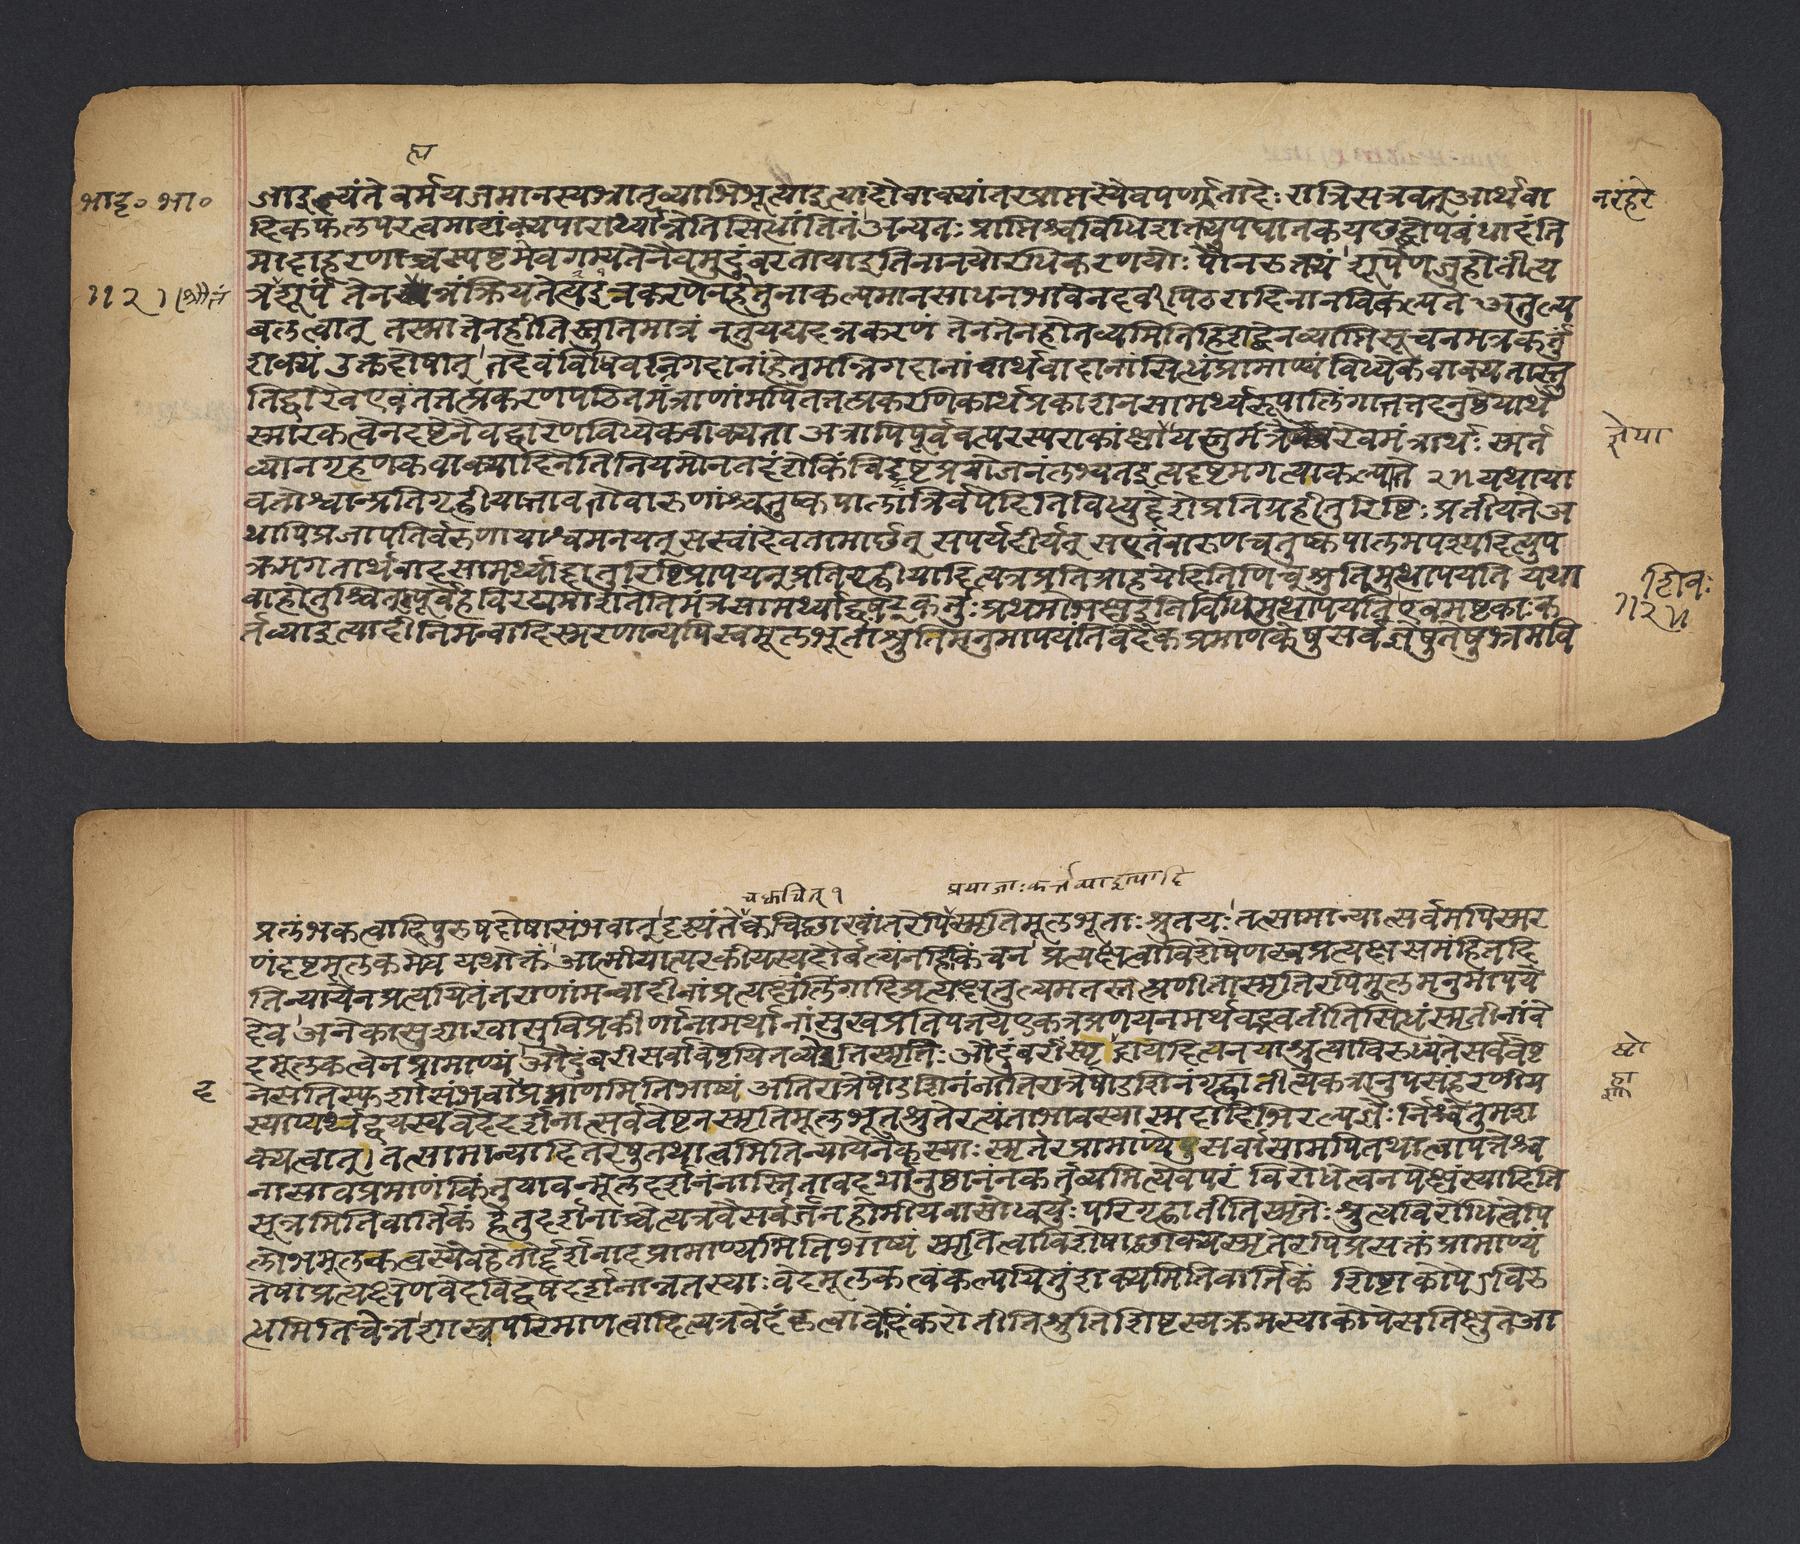 ह्य
भादृ० भा०
जाइज्यंते वर्मयजमानस्यभ्रातृव्याभिभूत्याइत्यादौवाक्यांतरप्राप्तस्यैवपर्णतादेः रात्रिसत्रवत्आर्थवा
नरंहरे
दिकफलपरत्वमाशंक्यपारार्थ्यान्नेतिसिद्धांतितं अन्यतः प्राप्तिश्चविधिशक्त्युपघातकयछद्वोपबंधादंति
मादाहरणाच्चस्पष्टमेवगम्यतेनैवमुदुंबरतायाइतिनानयोरधिकरणयोः पौनरुक्त्यं शूर्पेणजुहोतीत्य
॥२॥ श्रौतं
त्र शूर्पं तेन ह्यन्नंक्रियतेत्यन्नकरणेनहेतुनाकल्पमानसाधनभावेनदर्वीपिठरादिनानविकल्पते अतुल्य
बलत्वात् तस्मात्तेनहीतिस्तुतिमात्रं नतुयद्यदन्नकरणं तेनतेनहोतव्यमितिहिशब्देनव्याप्तिसूचनमत्रकर्तुं
शक्यं उक्तदोषात् तदेवंविधिवन्निगदानांहेतुमन्निगदानांचार्थवादानांसिद्धंप्रामाण्यंविध्येकवाक्यतास्तु
तिद्वारेव एवंतत्तत्प्रकरणपठितमंत्राणामपितत्तत्प्रकरणिकार्थप्रकाशनसामर्थ्यरूपालिंगात्तत्तदनुष्ठेयार्थ
स्मारकत्वेनदृष्टेनैवद्वारेणविध्येकवाक्यता अत्रापिपूर्ववत्परस्पराकांक्षायस्तुमंत्रैरेवमंत्रार्थः स्मर्त
ज्ञेया
व्योनगृहणकवाक्यादिनेतिनियमोनतदंशेकिंचिद्दृष्टप्रयोजनंलभ्यतइत्यदृष्टमगत्याकल्पते २॥ यथाया
वतोश्वान्प्रतिगृह्णीयात्तावतोवारुणांश्चतुष्कपालान्निर्वपेदितिविध्युद्देशेप्रतिग्रहीतुरिष्टिः प्रतीयतेअ
थापिप्रजापतिर्वरुणायाश्वमनयत् सस्वांदेवतामार्छत् सपर्यदीर्यत सएतंवारुणचतुष्कपालमपश्यदित्युप
क्रमगतार्थवादसामर्थ्याद्दातुरिष्टिंप्रापयन्प्रतिगृह्णीयादित्यत्रप्रतिग्राहयेदितिणिच्श्रुतिमुत्थापयति यथा
ष्टिवः
वाहोतुश्चित्पूर्वेहविरद्यमाशतेतिमंत्रसामर्थ्याद्वषट्कर्तुः प्रथमोभक्षइतिविधिमुत्थापयति एवमष्टकाःक
॥२॥
र्तव्याइत्यादीनिमन्वादिस्मरणान्यपिस्वमूलभूतांश्रुतिमनुमापयंतिवेदैकप्रमाणकेषुसर्वज्ञेषुतेषुभ्रमवि
चक्वचित् १
प्रयाजाःकर्तव्याइत्यादि
प्रलंभकत्वादिपुरुषदोषासंभवात् दृश्यंतेक्वचिछाखांतरेपिस्मृतिमूलभूताः श्रुतयः तत्सामान्यात्सर्वमपिस्मर
णंदृष्टमूलकमेव यथोक्तं आत्मीयात्परकीयस्यदौर्बल्यंनहिकिंचन प्रत्यक्षत्वाविशेषेणस्वप्रत्यक्षसमंहितदि
तिन्यायेनप्रत्ययितंतराणांमन्वादीनांप्रत्यक्षंलिंगादिप्रत्यक्षतुल्यमतस्तत्प्रणीतास्मृतिरपिमूलमनुमापये
देव अनेकासुशाखासुविप्रकीर्णानामर्थानांसुखप्रतिपत्तयेएकत्रप्रणयनमर्थवद्भवतीतिसिद्धंस्मृतीनांवे
दमूलकत्वेनप्रामाण्यं औदुंबरीसर्वावेष्टयितव्येतिस्मृतिः औदुंबरींस्पृ द्गायेदित्यनयाश्रुत्याविरुध्यतेसर्ववेष्ट
ष्टो
ह्णा
नेसतिस्पर्शासंभवादप्रमाणमितिभाष्यं अतिरात्रेषोडशिनंनातिरात्रेषोडशिनंगृह्णातीत्येकत्रानुपसंहरणीय
स्याप्यर्थद्वयस्यवेदेदर्शनात्सर्ववेष्टनस्मृतिमूलभूतश्रुतेरत्यंताभावस्यास्मदादिभिरल्पज्ञैः र्निश्चेतुमश
क्यत्वात् तत्सामान्यादितरेषुतथात्वमितिन्यायेनैकस्याः स्मृतेरप्रामाण्येसर्वासामपितथात्वापत्तेश्च
नासावप्रमाणंकिंतुयावन्मूलदर्शनंनास्तितावदर्थानुष्ठानंनकर्तव्यमित्येवपरं विरोधेत्वनपेक्ष्यंस्यादिति
सूत्रमितिवार्तिकं हेतुदर्शनाच्चेत्यत्रवैसर्जनहोमीयंवासोध्वर्युः परिगृह्णातीतिस्मृतेः श्रुत्यविरोधित्वेपि
लोभमूलकत्वस्यैवहेतोर्दर्शनादप्रामाण्यमितिभाष्यं स्मृतित्वाविशेषाछाक्यस्मृतेरपिप्रसक्तंप्रामाण्यं
तेषांप्रत्यक्षेणवेदविद्वेषदर्शनान्नतस्याः वेदमूलकत्वंकल्पयितुंशक्यमितिवार्तिकं शिष्टाकोपेऽविरु
द्धमितिचेन्न शास्त्रपरिमाणत्वादित्यत्रवेदंकृत्वावेदिंकरोतीतिश्रुतिशिष्टस्यक्रमस्याकोपेसतिक्षुतेआ